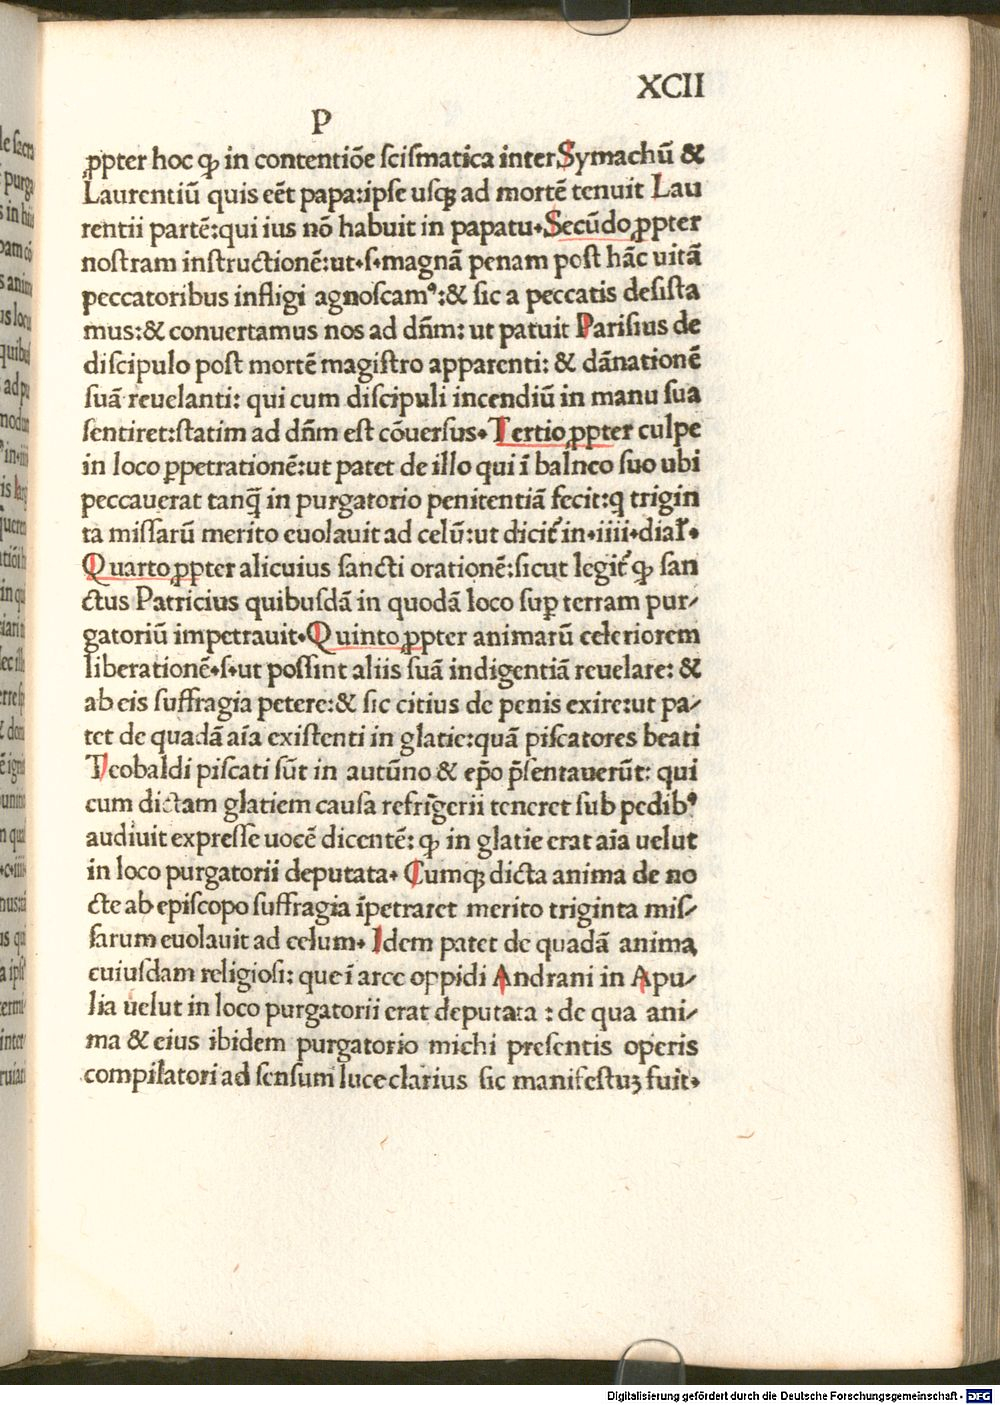 XCII
P
ꝓpter hoc ꝙ in contentiōe ſciſmatica inter Symachū &
Laurentiū quis eēt papa:ipſe uſqꝫ ad mortē tenuit Lau
rentii partē:qui ius nō habuit in papatu. Secūdo ꝓpter
noſtram inſtructionē:ut.ſ.magnā penam poſt hāc uitā
peccatoribus infligi agnoſcamꝰ:& ſic a peccatis deſiſta
mus:& conuertamus nos ad dn̄m: ut patuit Pariſius de
diſcipulo poſt mortē magiſtro apparenti: & dānationē
ſuā reuelanti: qui cum diſcipuli incendiū in manu ſua
ſentiret:ſtatim ad dn̄m eſt cōuerſus. Tertio ꝓpter culpe
in loco ꝑpetrationē:ut patet de illo qui ī balneo ſuo ubi
peccauerat tanq̄ in purgatorio penitentiā fecit:q trigin
ta miſſarū merito euolauit ad celū:ut dicit᷑ in.iiii.dial̓.
Quarto ꝓpter alicuius ſancti orationē:ſicut legit᷑ ꝙ ſan
ctus Patricius quibuſdā in quodā loco suꝑ terram pur-
gatoriū impetrauit. Quinto ꝓpter animarū celeriorem
liberationē.ſ.ut poſſint aliis ſuā indigentiā reuelare: &
ab eis ſuffragia petere:& ſic citius de penis exire:ut pa-
tet de quadā aīa exiſtenti in glatie:quā piſcatores beati
Teobaldi piſcati ſūt in autūno & ep̄o p̄ſentauerūt: qui
cum dictam glatiem cauſa refrīgerii teneret ſub pedibꝰ
audiuit expreſſe uocē dicentē: ꝙ in glatie erat aīa uelut
in loco purgatorii deputata. Cumqꝫ dicta anima de no
cte ab epiſcopo ſuffragia īpetraret merito triginta miſ-
ſarum euolauit ad celum. Idem patet de quadā anima
cuiuſdam religioſi: que ī arce oppidi Andrani in Apu-
lia uelut in loco purgatorii erat deputata : de qua ani-
ma & eius ibidem purgatorio michi preſentis operis
compilatori ad ſenſum luce clarius ſic manifeſtuꝫ fuit.
Digitalisierung gefördert durch die Deutsche Forschungsgemeinschaft - DFG